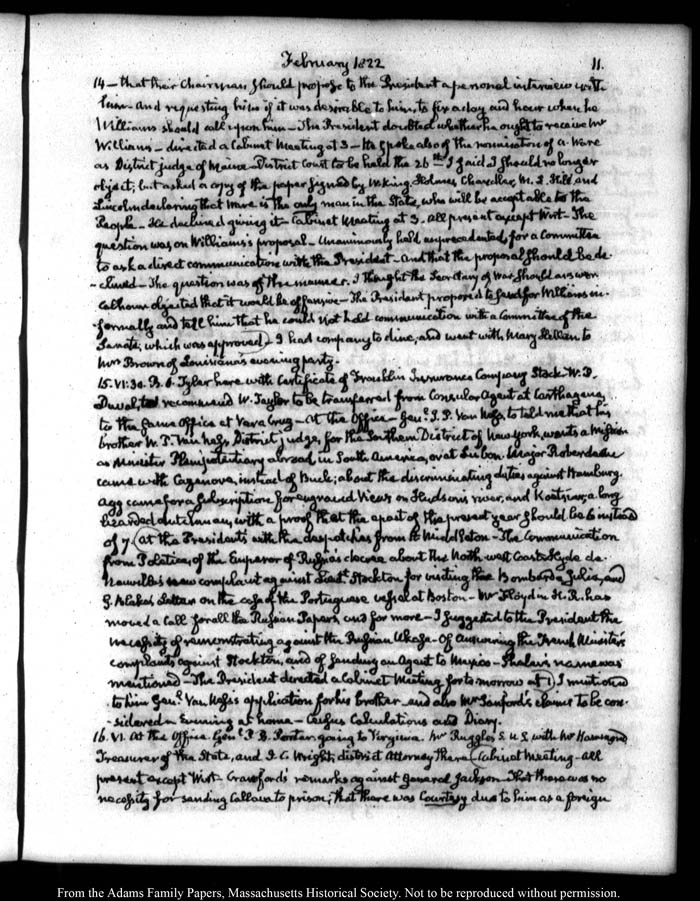 February 1822 11.
14 — that their Chairman, should propose to the President a personal interview with
him — and requesting him if it was desirable to him, to fix a day and hour when he
Williams should call upon him — The President doubted whether he ought to receive Mr
Williams — directed a Cabinet Meeting at 3 — He spoke also of the nomination of A. Ware
as District judge of Maine — District Court to be held the 26th I said I should no longer
object; but asked a copy of the paper signed by W. King, Holmes, Chandler, M. L. Hill and
Lincoln declaring that Ware is the only man in the State, who will be acceptable to the
People — He declined giving it — Cabinet Meeting at 3. all present except Wirt — The
question was on Williams's proposal — Unanimously held unprecedented, for a Committee
to ask a direct communication with the President — and that the proposal should be de-
-clined — The question was of the manner. I thought the Secretary of War should answer
Calhoun objected that it would be offensive — The President proposed to send for Williams in-
-formally and tell him that he could not hold communication with a Committee of the
Senate, which was approved — I had company to dine, and went with Mary Hellen to
Mrs Brown of Louisiana's evening party.
15. VI:30. B. O. Tyler here with Certificate of Franklin Insurance Company Stock — W. P.
Duval, to recommend W. Taylor to be transferred from Consular Agent at Carthagena,
to the same Office at Vera Cruz — At the Office — Genl. J. P. Van Ness, to told me that his
brother W. P. Van Ness, District judge, for the Southern District of New York, wants a Mission
as Minister Plenipotentiary abroad in South America, or at Lisbon. Major Roberdeau
came with Cazenove, instead of Buck; about the discriminating duties against Hamburg.
Agg came for a subscription for engraved Views on Hudson's river, and a long
bearded dutchman, with a proof that the epact of the present year should be 6 instead
of 7. (at the Presidents with the despatches from H. Middleton — The Communication
from Poletica, of the Emperor of Russia's decree about the North-west Coast. Hyde de
Neuville's new complaint against Lieutt. Stockton for visiting the Bombarde Julie, and
G. Blake's Letter on the case of the Portuguese vessel at Boston — Mr Floyd in H. R. has
moved a Call for all the Russian Papers, and for more — I suggested to the President the
necessity of remonstrating against the Russian Ukase — Of answering the French Minister's
complaints against Stockton, and of sending an Agent to Mexico — Shaler's name was
mentioned — The President directed a Cabinet Meeting for to morrow at 1) I mentioned
to him Genl. Van Ness's application for his brother — and also Mr Sanford's claims to be con-
-sidered — Evening at home — Census Calculations and Diary.
16. VI. At the Office. Genl. P. B. Porter going to Virginia. Mr Ruggles S. U.S. with Mr Hammond
Treasurer of the State, and J. C. Wright, district Attorney there (Cabinet Meeting — all
present except Wirt — Crawford's remarks against General Jackson — That there was no
necessity for sending Callava to prison; that there was Courtesy due to him as a foreign
From the Adams Family Papers, Massachusetts Historical Society. Not to be reproduced without permission.